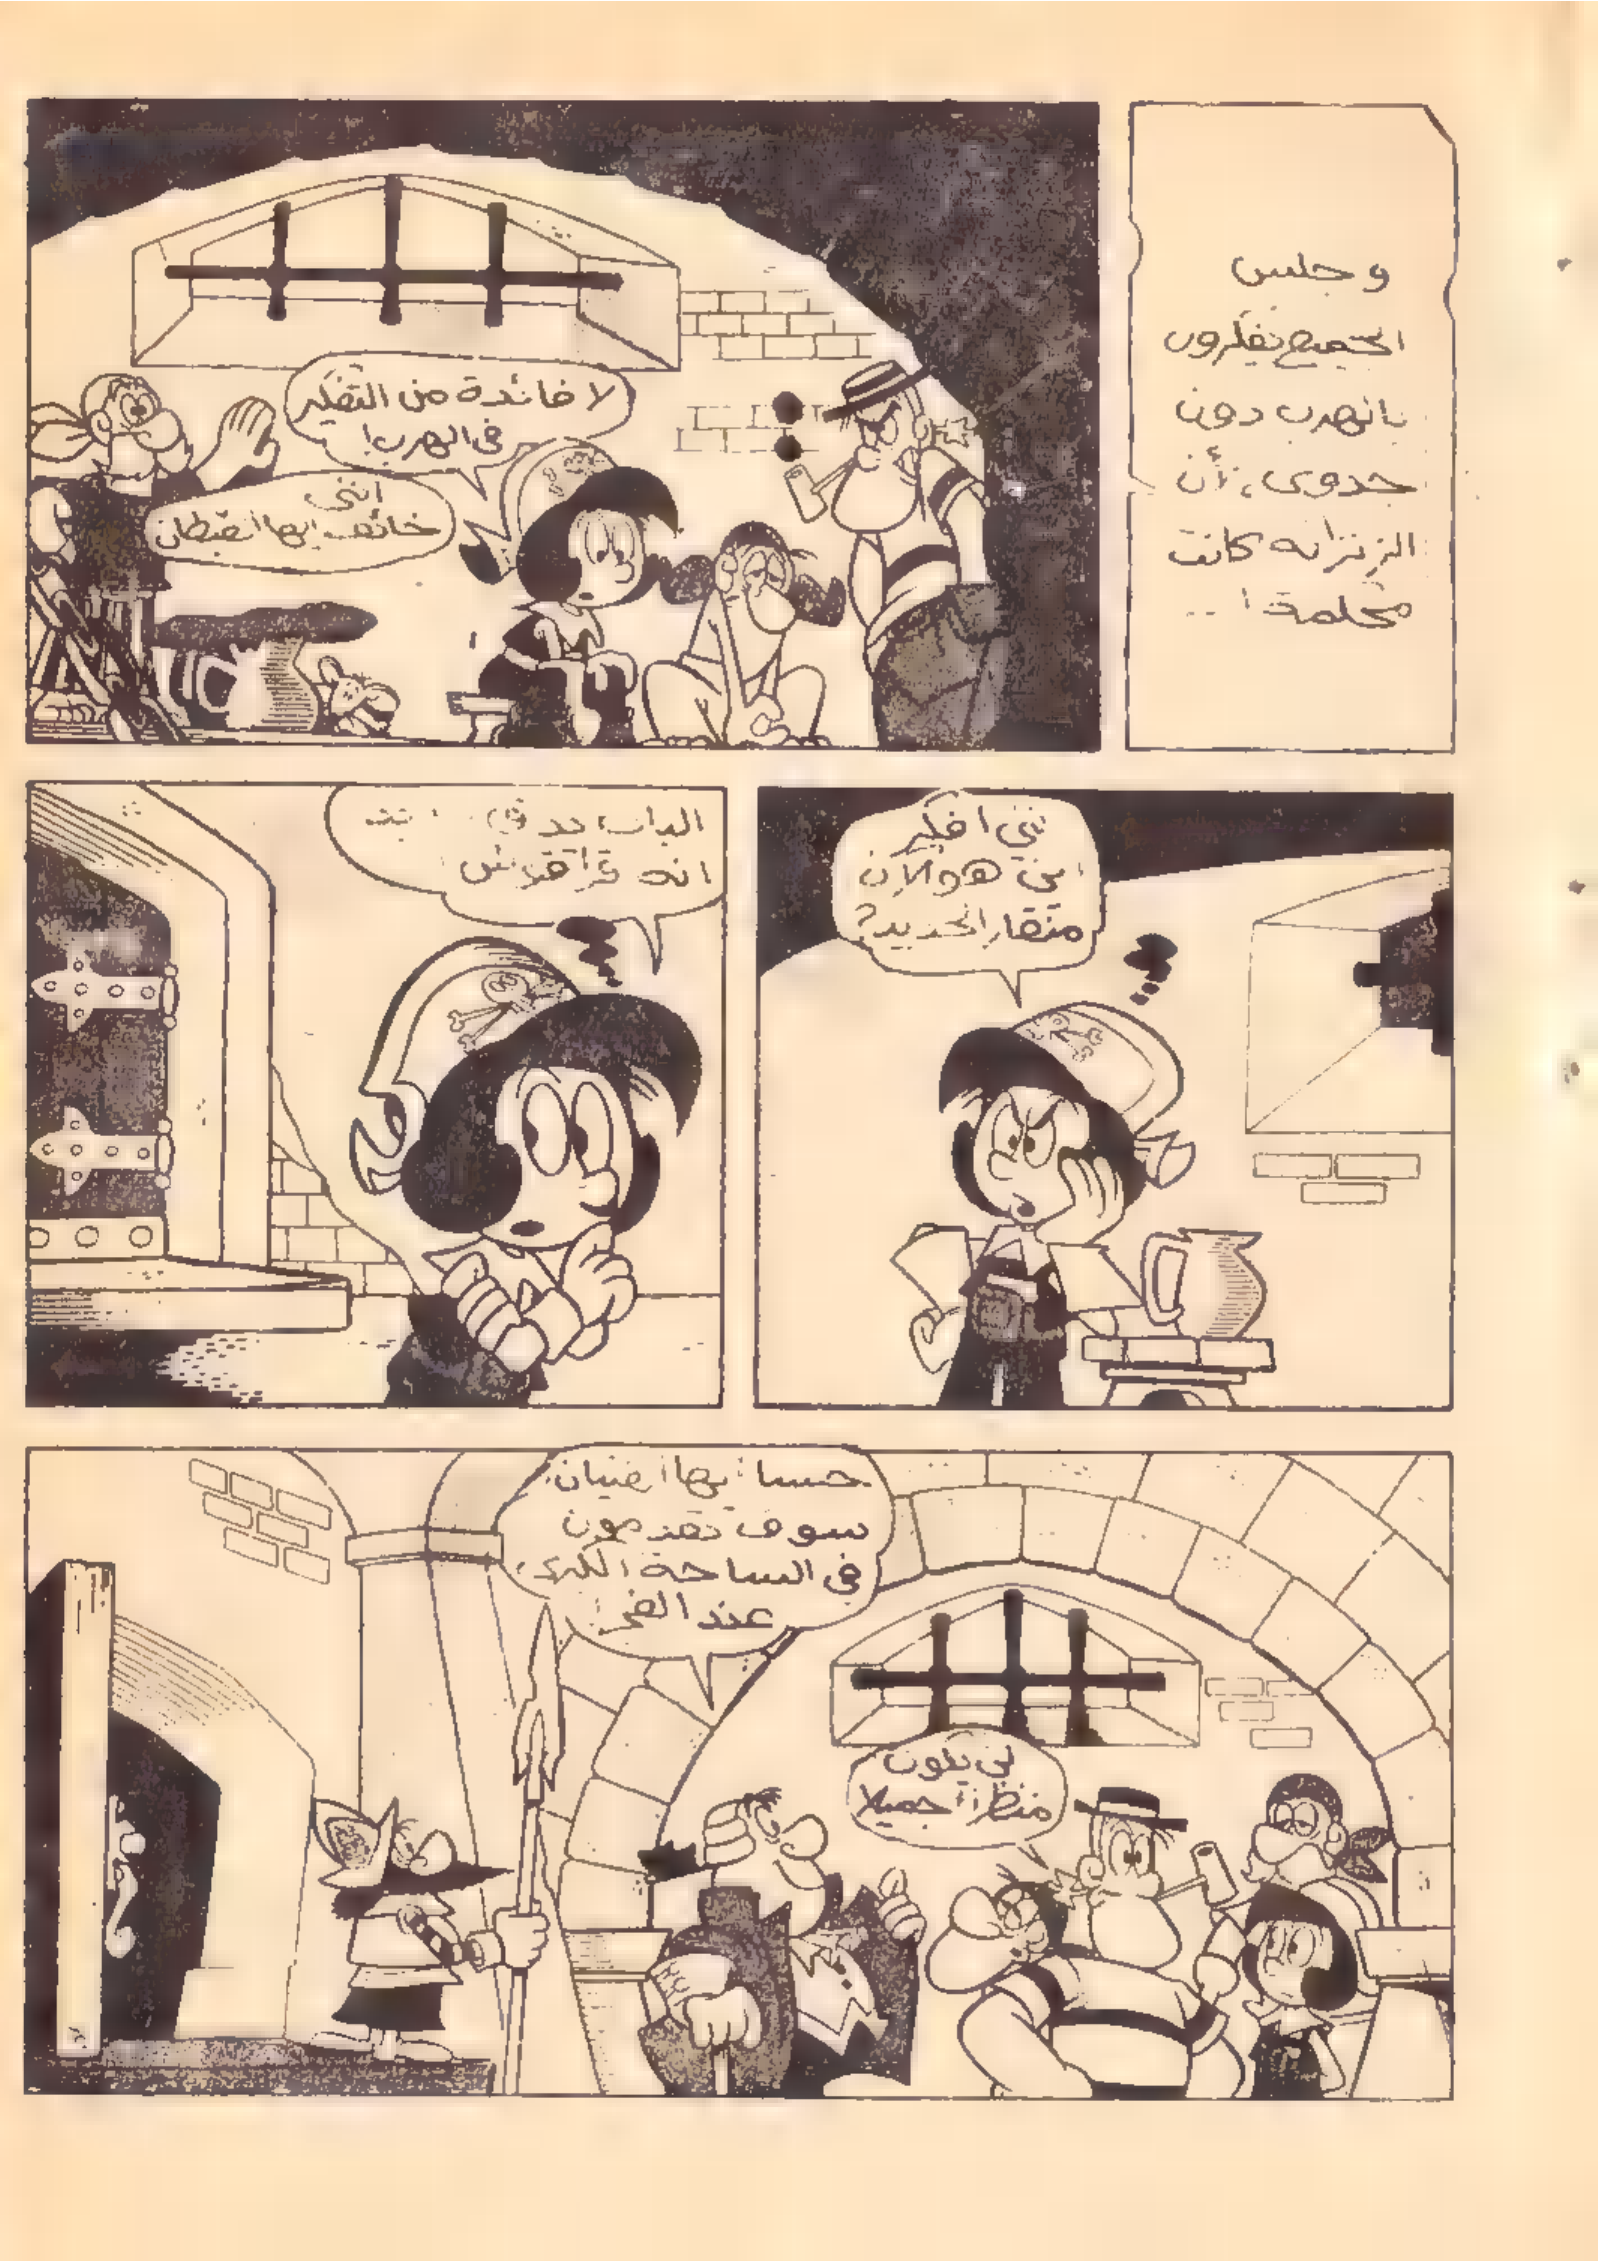 وجلس
الجميع يفكرون
بالهرب دون
جدوى، لأن
الزنزانه كانت
محكمة! ..
لا فائدة من التفكير
في الهرب!
إنني
خائف ايها القبطان
إنني افكر
اين هو الآن
منقار الحديد؟
الباب يدق
انه قراقوش
حسنا أيها الفتيان
سوف تعدمون
في الساحة الكبرى
عند الفجر!
لن يكون
منظراً جميلا